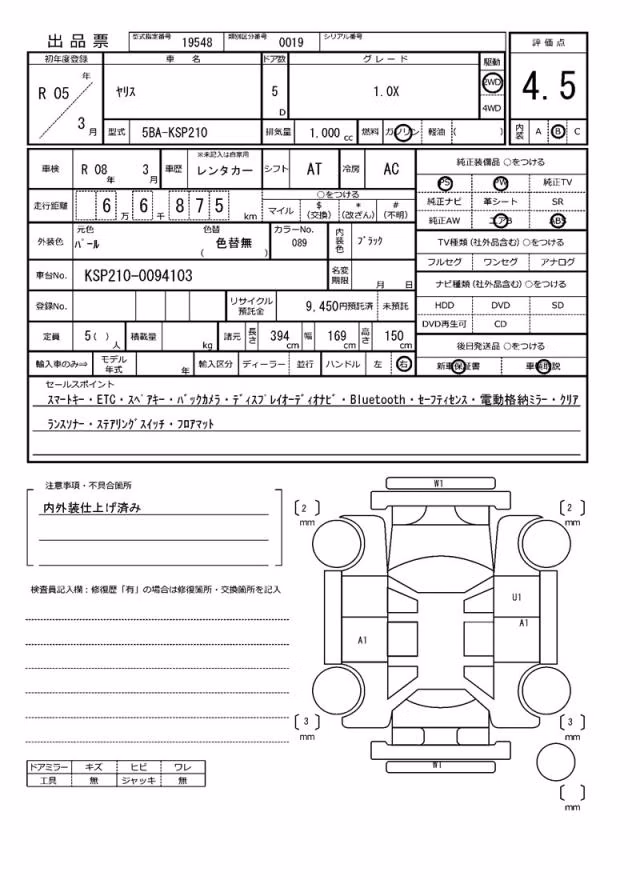 出品票 型式指定番号 19548 類別区分番号 0019 シリアル番号
評価点
4.5
初年度登録 車名 ドア数 グレード 駆動
R 05 年 3 月 ヤリス 5 D 1.0X 2WD 4WD
型式 5BA-KSP210 排気量 1.000 cc 燃料 ガソリン 軽油 ( )
内装 A B C
車検 R 08 年 3 月 車歴 ※未記入は自家用 レンタカー シフト AT 冷房 AC
純正装備品 ○をつける
PS PW 純正TV
純正ナビ 革シート SR
純正AW エアB ABS
走行距離 6 万 6 千 8 7 5 km
○をつける
マイル $ (交換) * (改ざん) # (不明)
外装色 元色 パール 色替 色替無 ( ) カラーNo. 089 内装色 ブラック
TV種類 (社外品含む) ○をつける
フルセグ ワンセグ アナログ
車台No. KSP210-0094103 名変期限 月 日
ナビ種類 (社外品含む) ○をつける
HDD DVD SD
DVD再生可 CD
登録No. リサイクル預託金 9,450円預託済 未預託
定員 5 ( ) 人 積載量 kg 諸元 長さ 394 cm 幅 169 cm 高さ 150 cm
後日発送品 ○をつける
新車保証書 車輌取説
輸入車のみ⇒ モデル年式 年 輸入区分 ディーラー 並行 ハンドル 左 右
セールスポイント
スマートキー・ETC・スペアキー・バックカメラ・ディスプレイオーディオナビ・Bluetooth・セーフティセンス・電動格納ミラー・クリア
ランスソナー・ステアリングスイッチ・フロアマット
注意事項・不具合箇所
内外装仕上げ済み
検査員記入欄：修復歴「有」の場合は修復箇所・交換箇所を記入
W1
[ 2 ] mm
[ 2 ] mm
U1
A1
A1
[ 3 ] mm
[ 3 ] mm
W1
[ ] mm
ドアミラー キズ ヒビ ワレ
工具 無 ジャッキ 無